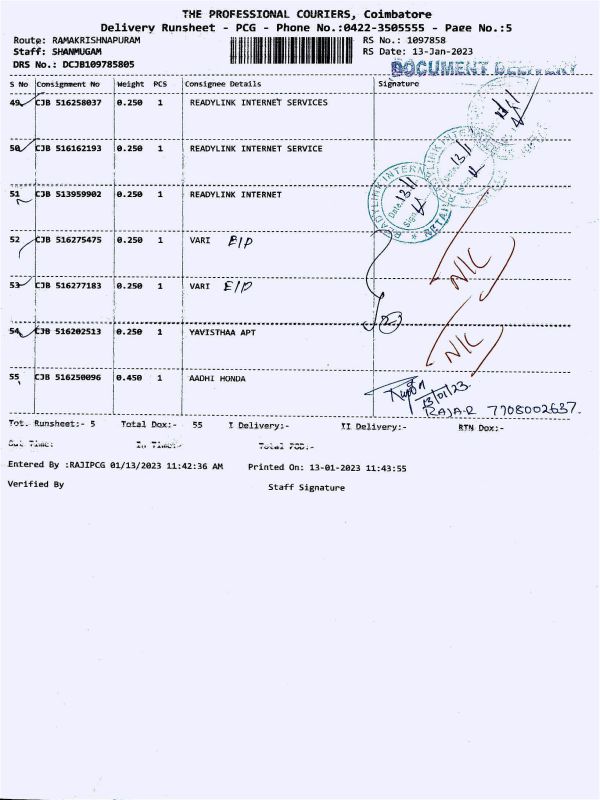 THE PROFESSIONAL COURIERS, Coimbatore
Delivery Runsheet - PCG - Phone No.:0422-3505555 - Page No.:5
Route: RAMAKRISHNAPURAM RS No.: 1097858
Staff: SHANMUGAM RS Date: 13-Jan-2023
DRS No.: DCJB109785805
DOCUMENT DELIVERY
S No Consignment No Weight PCS Consignee Details Signature
49 CJB 516258037 0.250 1 READYLINK INTERNET SERVICES
50 CJB 516162193 0.250 1 READYLINK INTERNET SERVICE
51 CJB 513959902 0.250 1 READYLINK INTERNET
52 CJB 516275475 0.250 1 VARI
53 CJB 516277183 0.250 1 VARI
N/C
54 CJB 516202513 0.250 1 YAVISTHAA APT
N/C
55 CJB 516250096 0.450 1 AADHI HONDA
13/01/23
RAJA-R 7708002637.
Tot. Runsheet:- 5 Total Dox:- 55 I Delivery:- II Delivery:- RTN Dox:-
Out Time: In Time:- Total POD:-
Entered By :RAJIPCG 01/13/2023 11:42:36 AM Printed On: 13-01-2023 11:43:55
Verified By Staff Signature